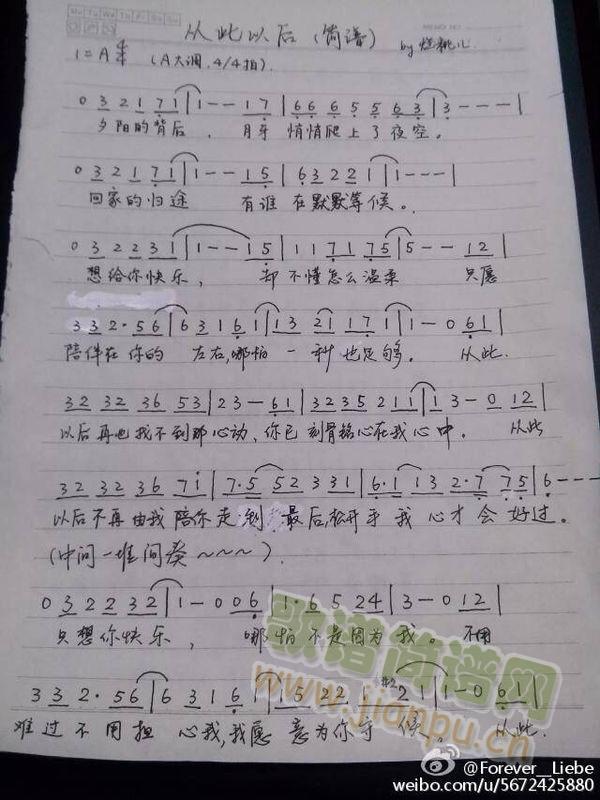 Mo Tu We Th Fr Sa Su
MEMO NO.
从此以后 (简谱) by
1=A 4/4 (A大调. 4/4拍).
0 3 2 1 7 1 | 1 - - 1 7 | 6 6 6 5 5 6 3 | 3 - - - |
夕阳的背后 , 月牙 悄悄爬上了夜空。
0 3 2 1 7 1 | 1 - - 1 5 | 6 3 2 2 1 | 1 - - - |
回家的归途 有谁 在默默等候。
0 3 2 2 3 1 | 1 - - 1 5 | 1 1 7 1 7 5 | 5 - - 1 2 |
想给你快乐, 却不懂怎么温柔 只愿
3 3 2 · 5 6 | 6 3 1 6 1 | 1 3 2 1 1 7 1 | 1 - 0 6 1 |
陪伴在你的 左右,哪怕 一种也足够。 从此.
3 2 3 2 3 6 5 3 | 2 3 - 6 1 | 3 2 3 5 2 1 1 | 1 3 - 0 1 2 |
以后再也找不到那心动、你已刻骨铭心在我心中. 从此
3 2 3 2 3 6 7 i | 7 · 5 5 2 3 3 1 | 6 · 1 1 3 2 · 7 7 5 | 6 - - -
以后不再由我陪你走到最后,松开手 我心才会好过。
(中间一堆间奏~~~~).
0 3 2 2 3 2 | 1 - 0 0 6 | 1 · 6 5 2 4 | 3 - 0 1 2 |
只想你快乐 , 哪怕不是因为我。 不用
3 3 2 · 5 6 | 6 3 1 6 | 1 5 2 2 #2 2 1 | 1 - 0 6 1 |
难过不用担 心我,我愿 意为你守候. 从此.
歌谱简谱网
www.jianpu.cn
@Forever__Liebe
weibo.com/u/5672425880